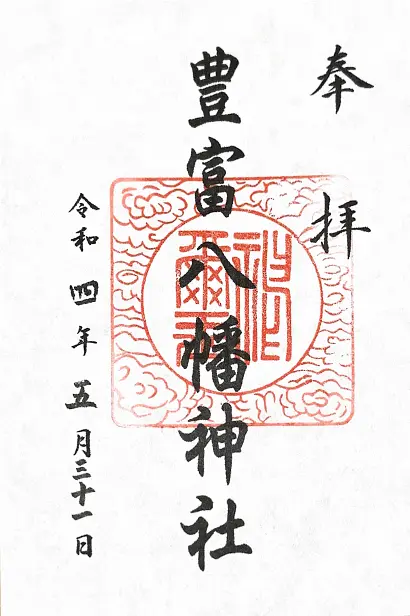 奉拝
豊富八幡神社
令和四年五月三十一日